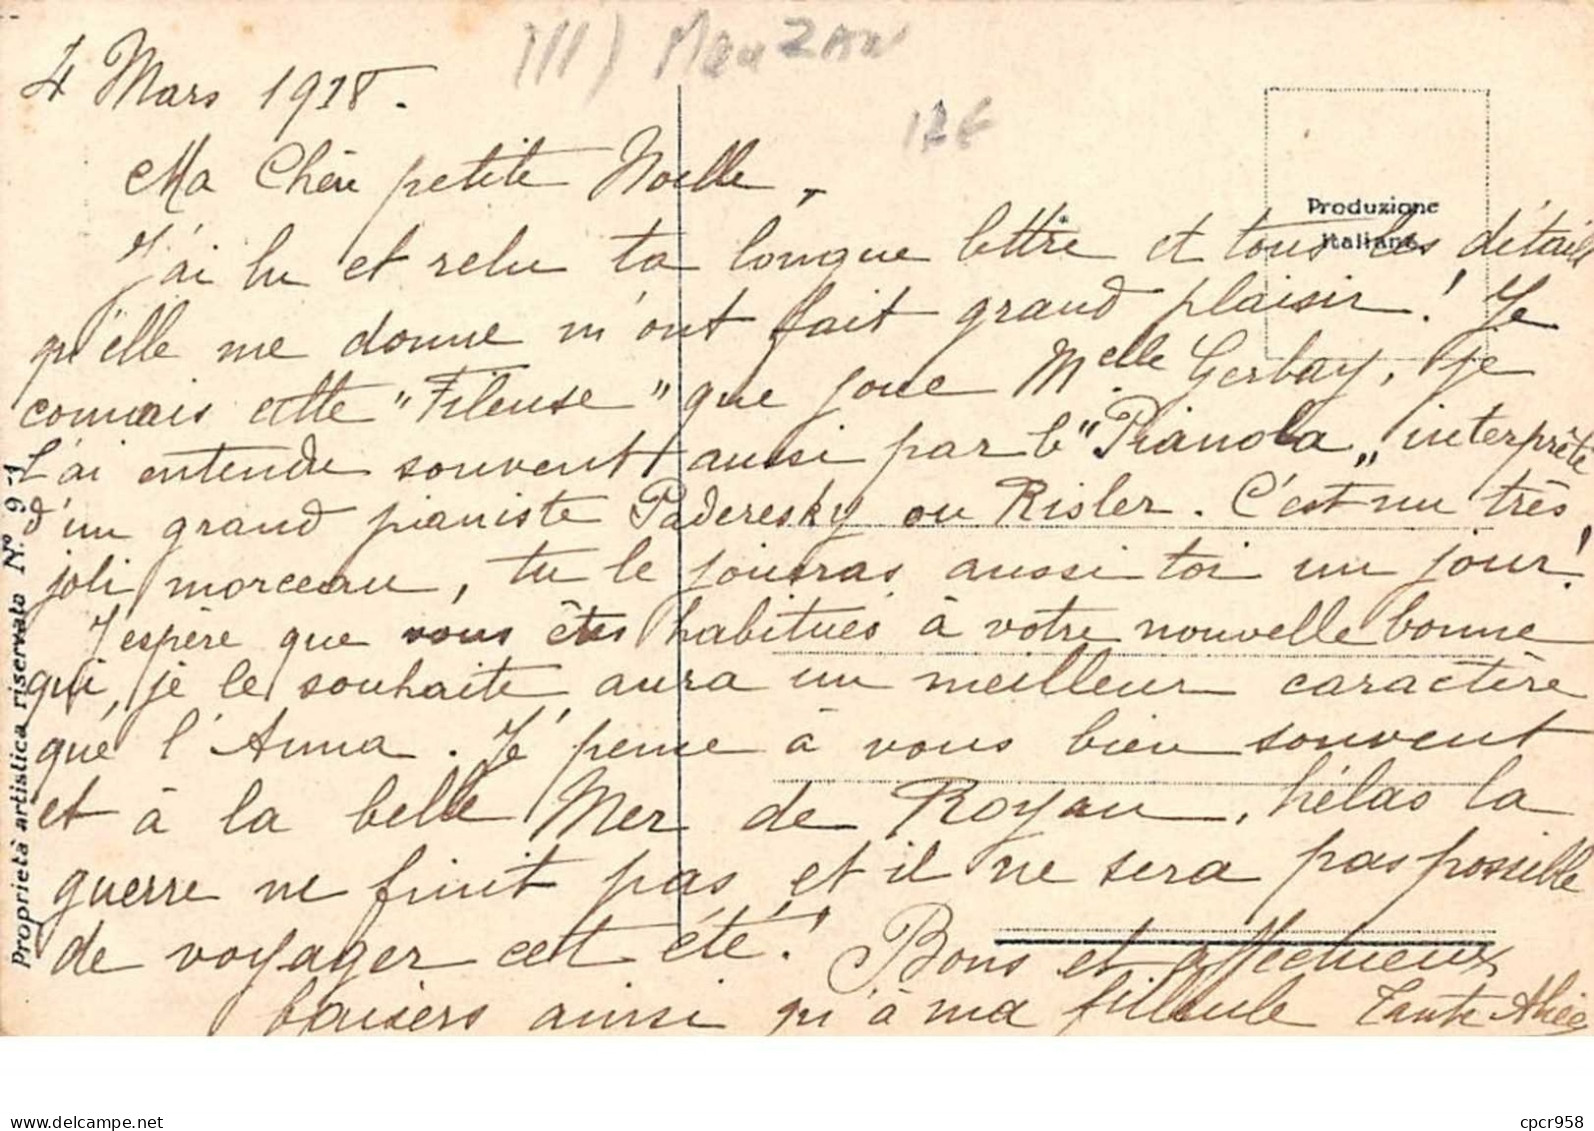 III) Mauzan
12€
4 Mars 1918.
Ma Chère petite Noelle,
J'ai lu et relu ta longue lettre et tous les détails
qu'elle me donne m'ont fait grand plaisir! Je
connais cette "Fileuse" que joue Melle Gerbay, je
l'ai entendu souvent aussi par le "Pianola" interprêté
d'un grand pianiste Paderesky ou Risler. C'est un très
joli morceau, tu le joueras aussi toi un jour!
J'espère que vous êtes habitués à votre nouvelle bonne
qui, je le souhaite, aura un meilleur caractère
que l'Anna. Je pense à vous bien souvent
et à la belle Mer de Royan, hélas la
guerre ne finit pas, et il ne sera pas possible
de voyager cet été! Bons et affectueux
baisers ainsi qu'à ma filleule Tante Alice
Produzione
italiana.
Proprietà artistica riservato N° 9-1
cpcr958